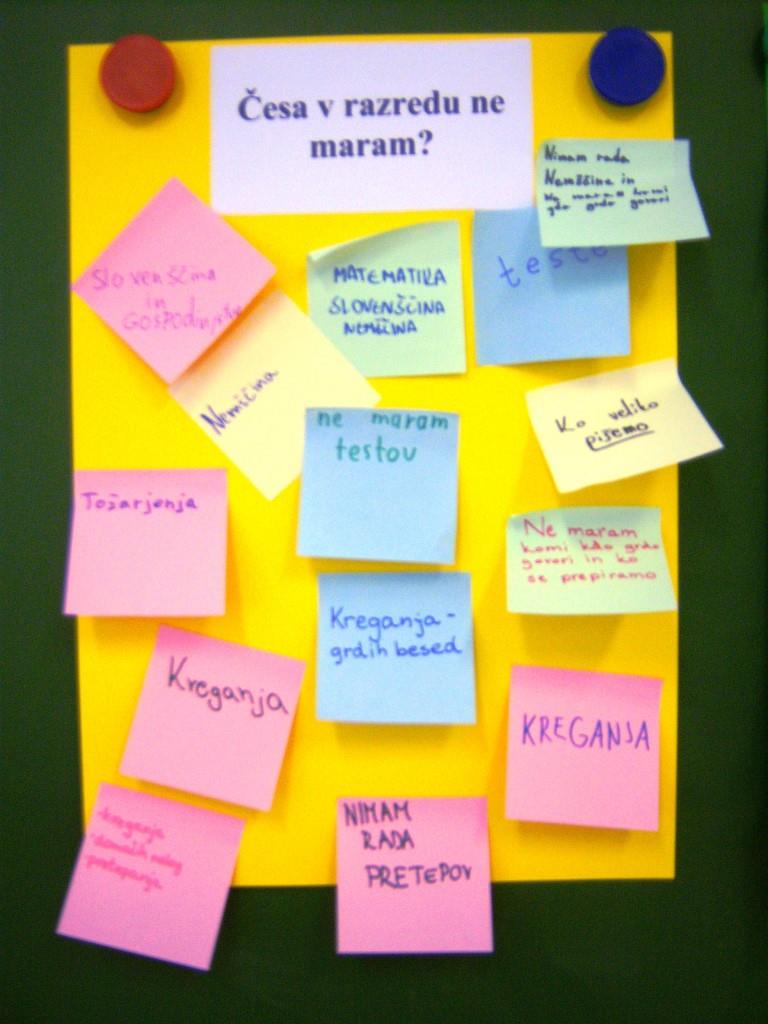 Česa v razredu ne
maram?
Nimam rada
Nemščina in
Ne maram komi
gdo grdo govori
Slovenščina
in
GOSPODinjstvo
MATEMATIKA
SLOVENŠČINA
NEMŠČINA
teste
Nemščina
ne maram
testov
Ko veliko
pišemo
Tožarjenja
Ne maram
komi kdo grdo
govori in ko
se prepiramo
Kreganja -
grdih besed
Kreganja
KREGANJA
-kreganja
-domačih nalog
-pretepanja
NIMAM
RADA
PRETEPOV